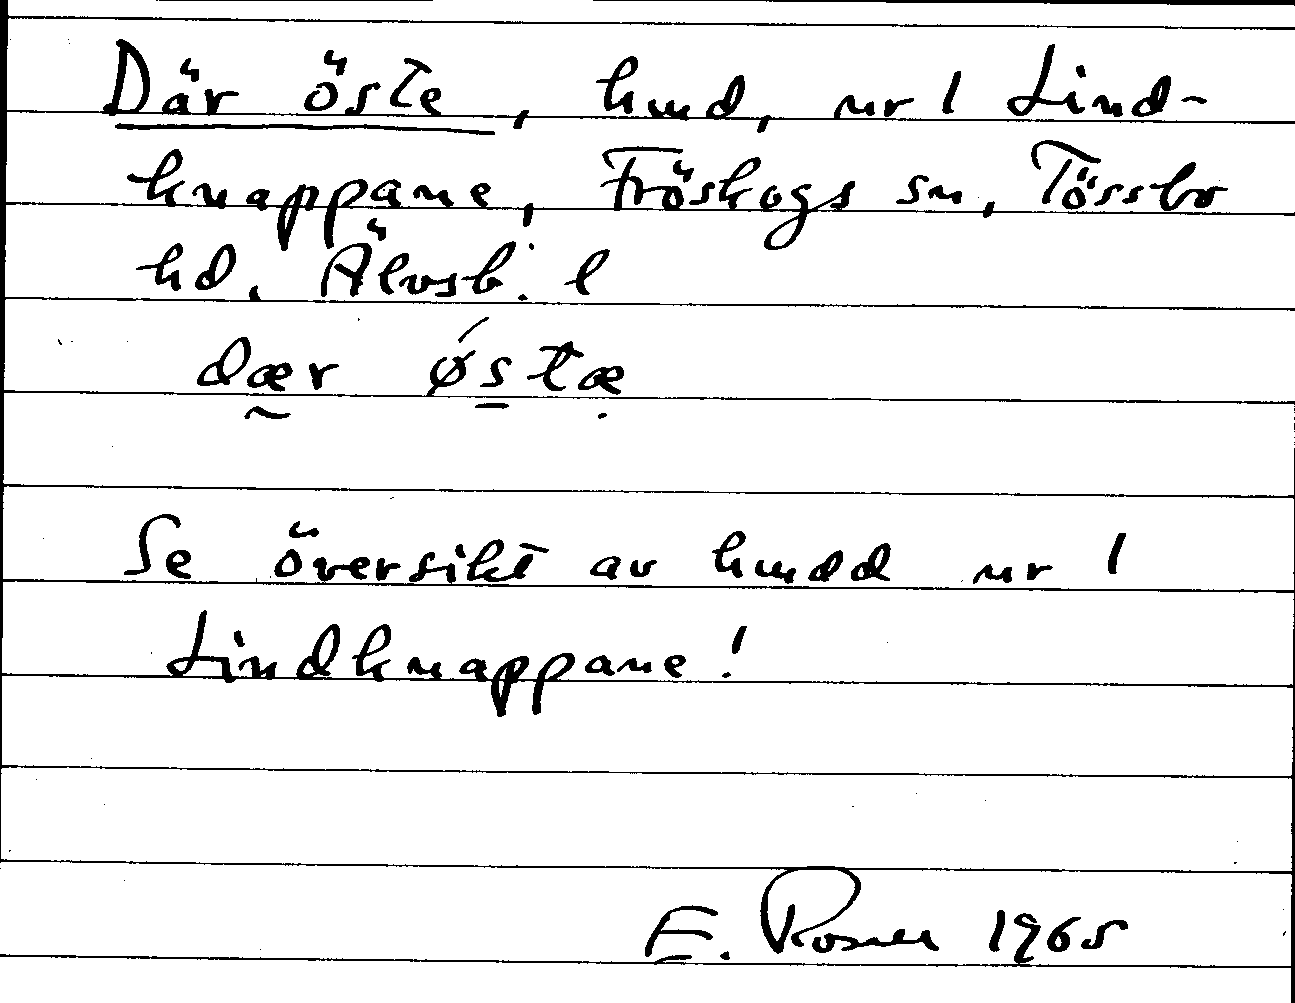 Där öste, hmd, nr 1 Lind-
knappane, Fröskogs sn, Tössbo
hd. Älvsb. l
dær østæ
Se översikt av hmdd nr 1
Lindknappane!
E. Rosell 1965